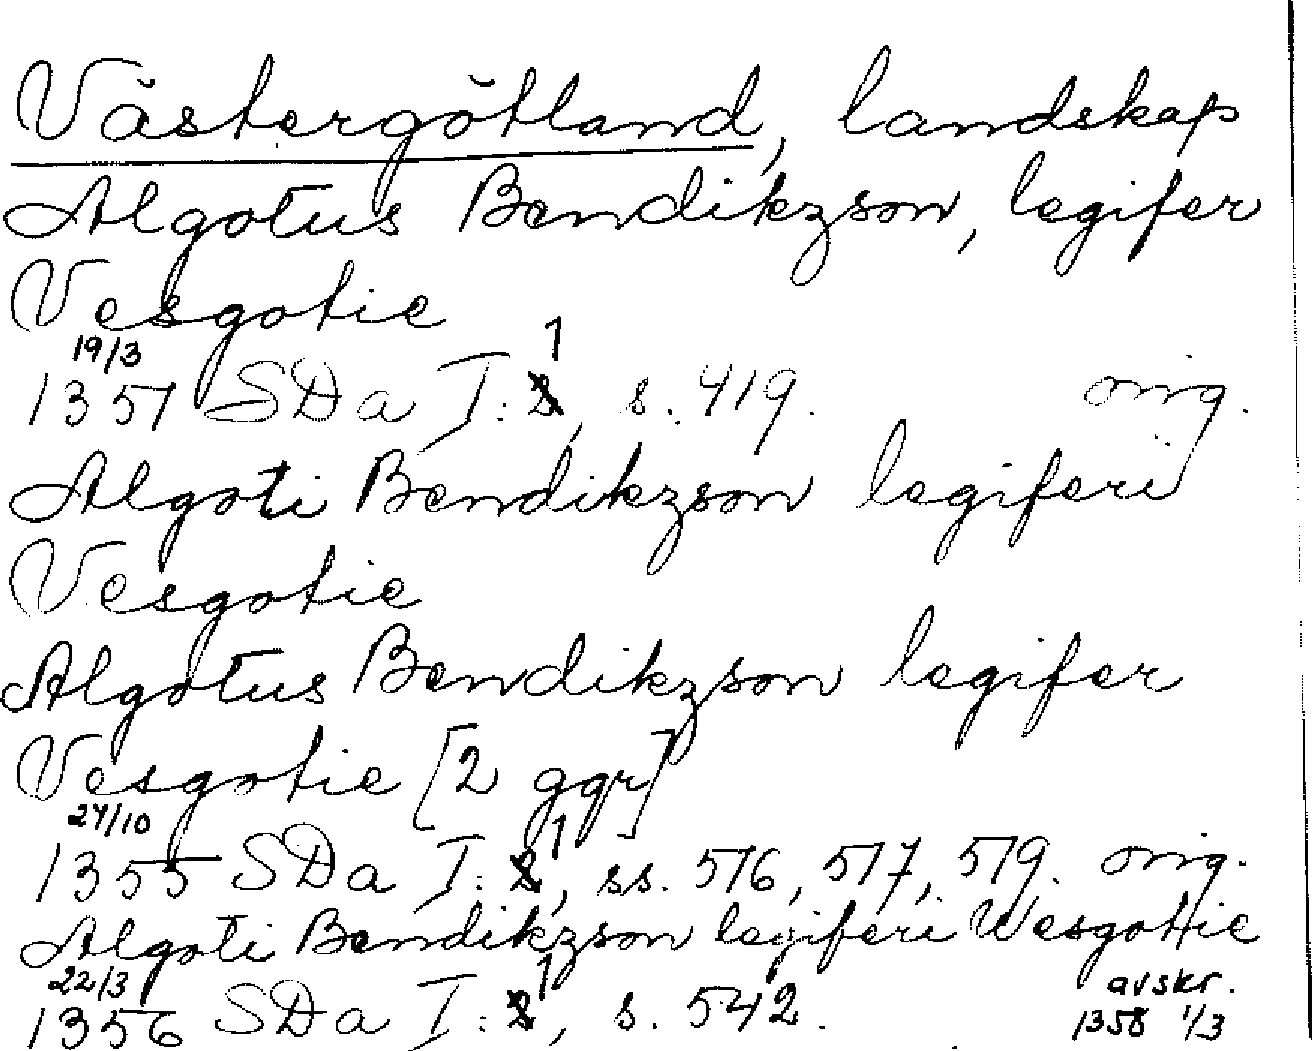 Västergötland, landskap
Algotus Bendikzson, legifer
Vesgotie
19/3
1351 SDa I:1, s. 419. orig.
Algoti Bendikzson legiferi
Vesgotie
Algotus Bendikzson legifer
Vesgotie [2 ggr]
24/10
1355 SDa I:1, ss. 516, 517, 519. orig.
Algoti Bendikzson legiferi Wesgottie
22/3 avskr.
1356 SDa I:1, s. 542. 1358 1/3